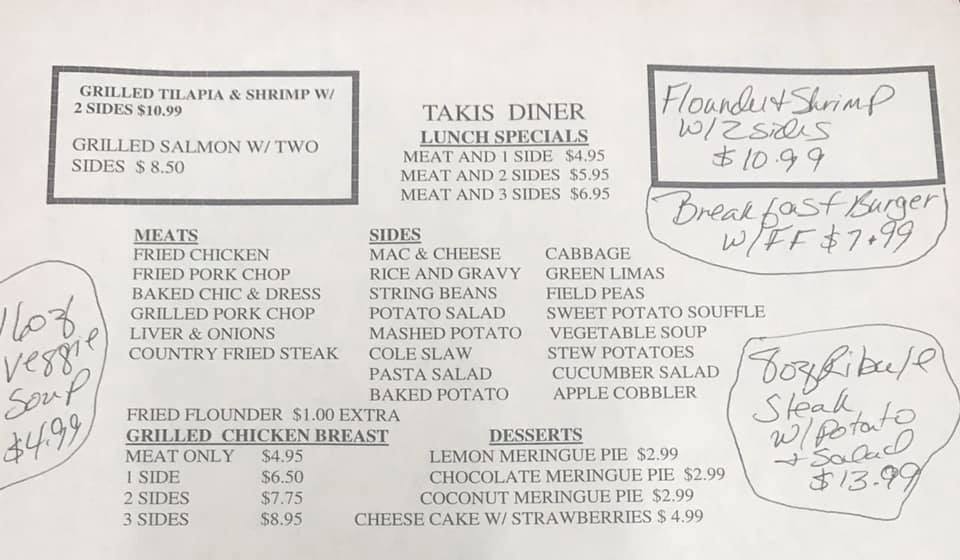 GRILLED TILAPIA & SHRIMP W/
2 SIDES $10.99
GRILLED SALMON W/ TWO
SIDES $ 8.50
TAKIS DINER
LUNCH SPECIALS
MEAT AND 1 SIDE $4.95
MEAT AND 2 SIDES $5.95
MEAT AND 3 SIDES $6.95
Flounder + Shrimp
W/2 sides
$10.99
Breakfast Burger
W/FF $7.99
MEATS
FRIED CHICKEN
FRIED PORK CHOP
BAKED CHIC & DRESS
GRILLED PORK CHOP
LIVER & ONIONS
COUNTRY FRIED STEAK
SIDES
MAC & CHEESE
RICE AND GRAVY
STRING BEANS
POTATO SALAD
MASHED POTATO
COLE SLAW
PASTA SALAD
BAKED POTATO
CABBAGE
GREEN LIMAS
FIELD PEAS
SWEET POTATO SOUFFLE
VEGETABLE SOUP
STEW POTATOES
CUCUMBER SALAD
APPLE COBBLER
16oz
Veggie
Soup
$4.99
8oz Ribeye
Steak
W/potato
+ Salad
$13.99
FRIED FLOUNDER $1.00 EXTRA
GRILLED CHICKEN BREAST
MEAT ONLY $4.95
1 SIDE $6.50
2 SIDES $7.75
3 SIDES $8.95
DESSERTS
LEMON MERINGUE PIE $2.99
CHOCOLATE MERINGUE PIE $2.99
COCONUT MERINGUE PIE $2.99
CHEESE CAKE W/ STRAWBERRIES $ 4.99